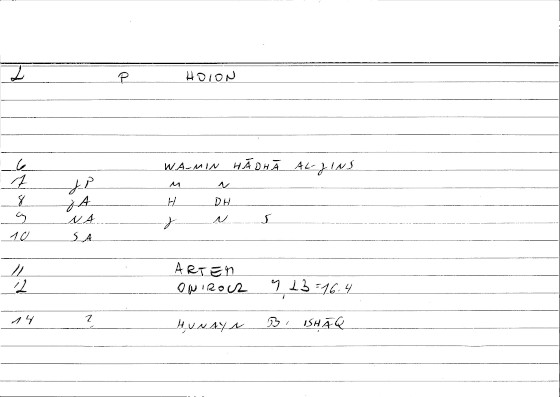 2 P HOION
6 WA-MIN HĀDHĀ AL-ǦINS
7 ǦP M N
8 ǦA H DH
9 NA Ǧ N S
10 SA
11 ARTEM
12 ONIROCR 23 = 16.4
14 ? ḤUNAYN B. ISḤĀQ